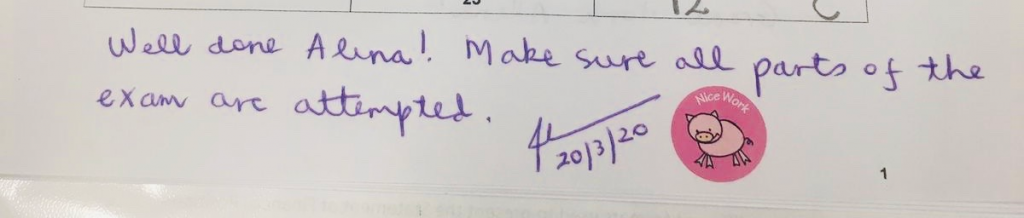 23
12 C
Well done Alina! Make sure all parts of the
exam are attempted.
20/3/20
Nice Work
1